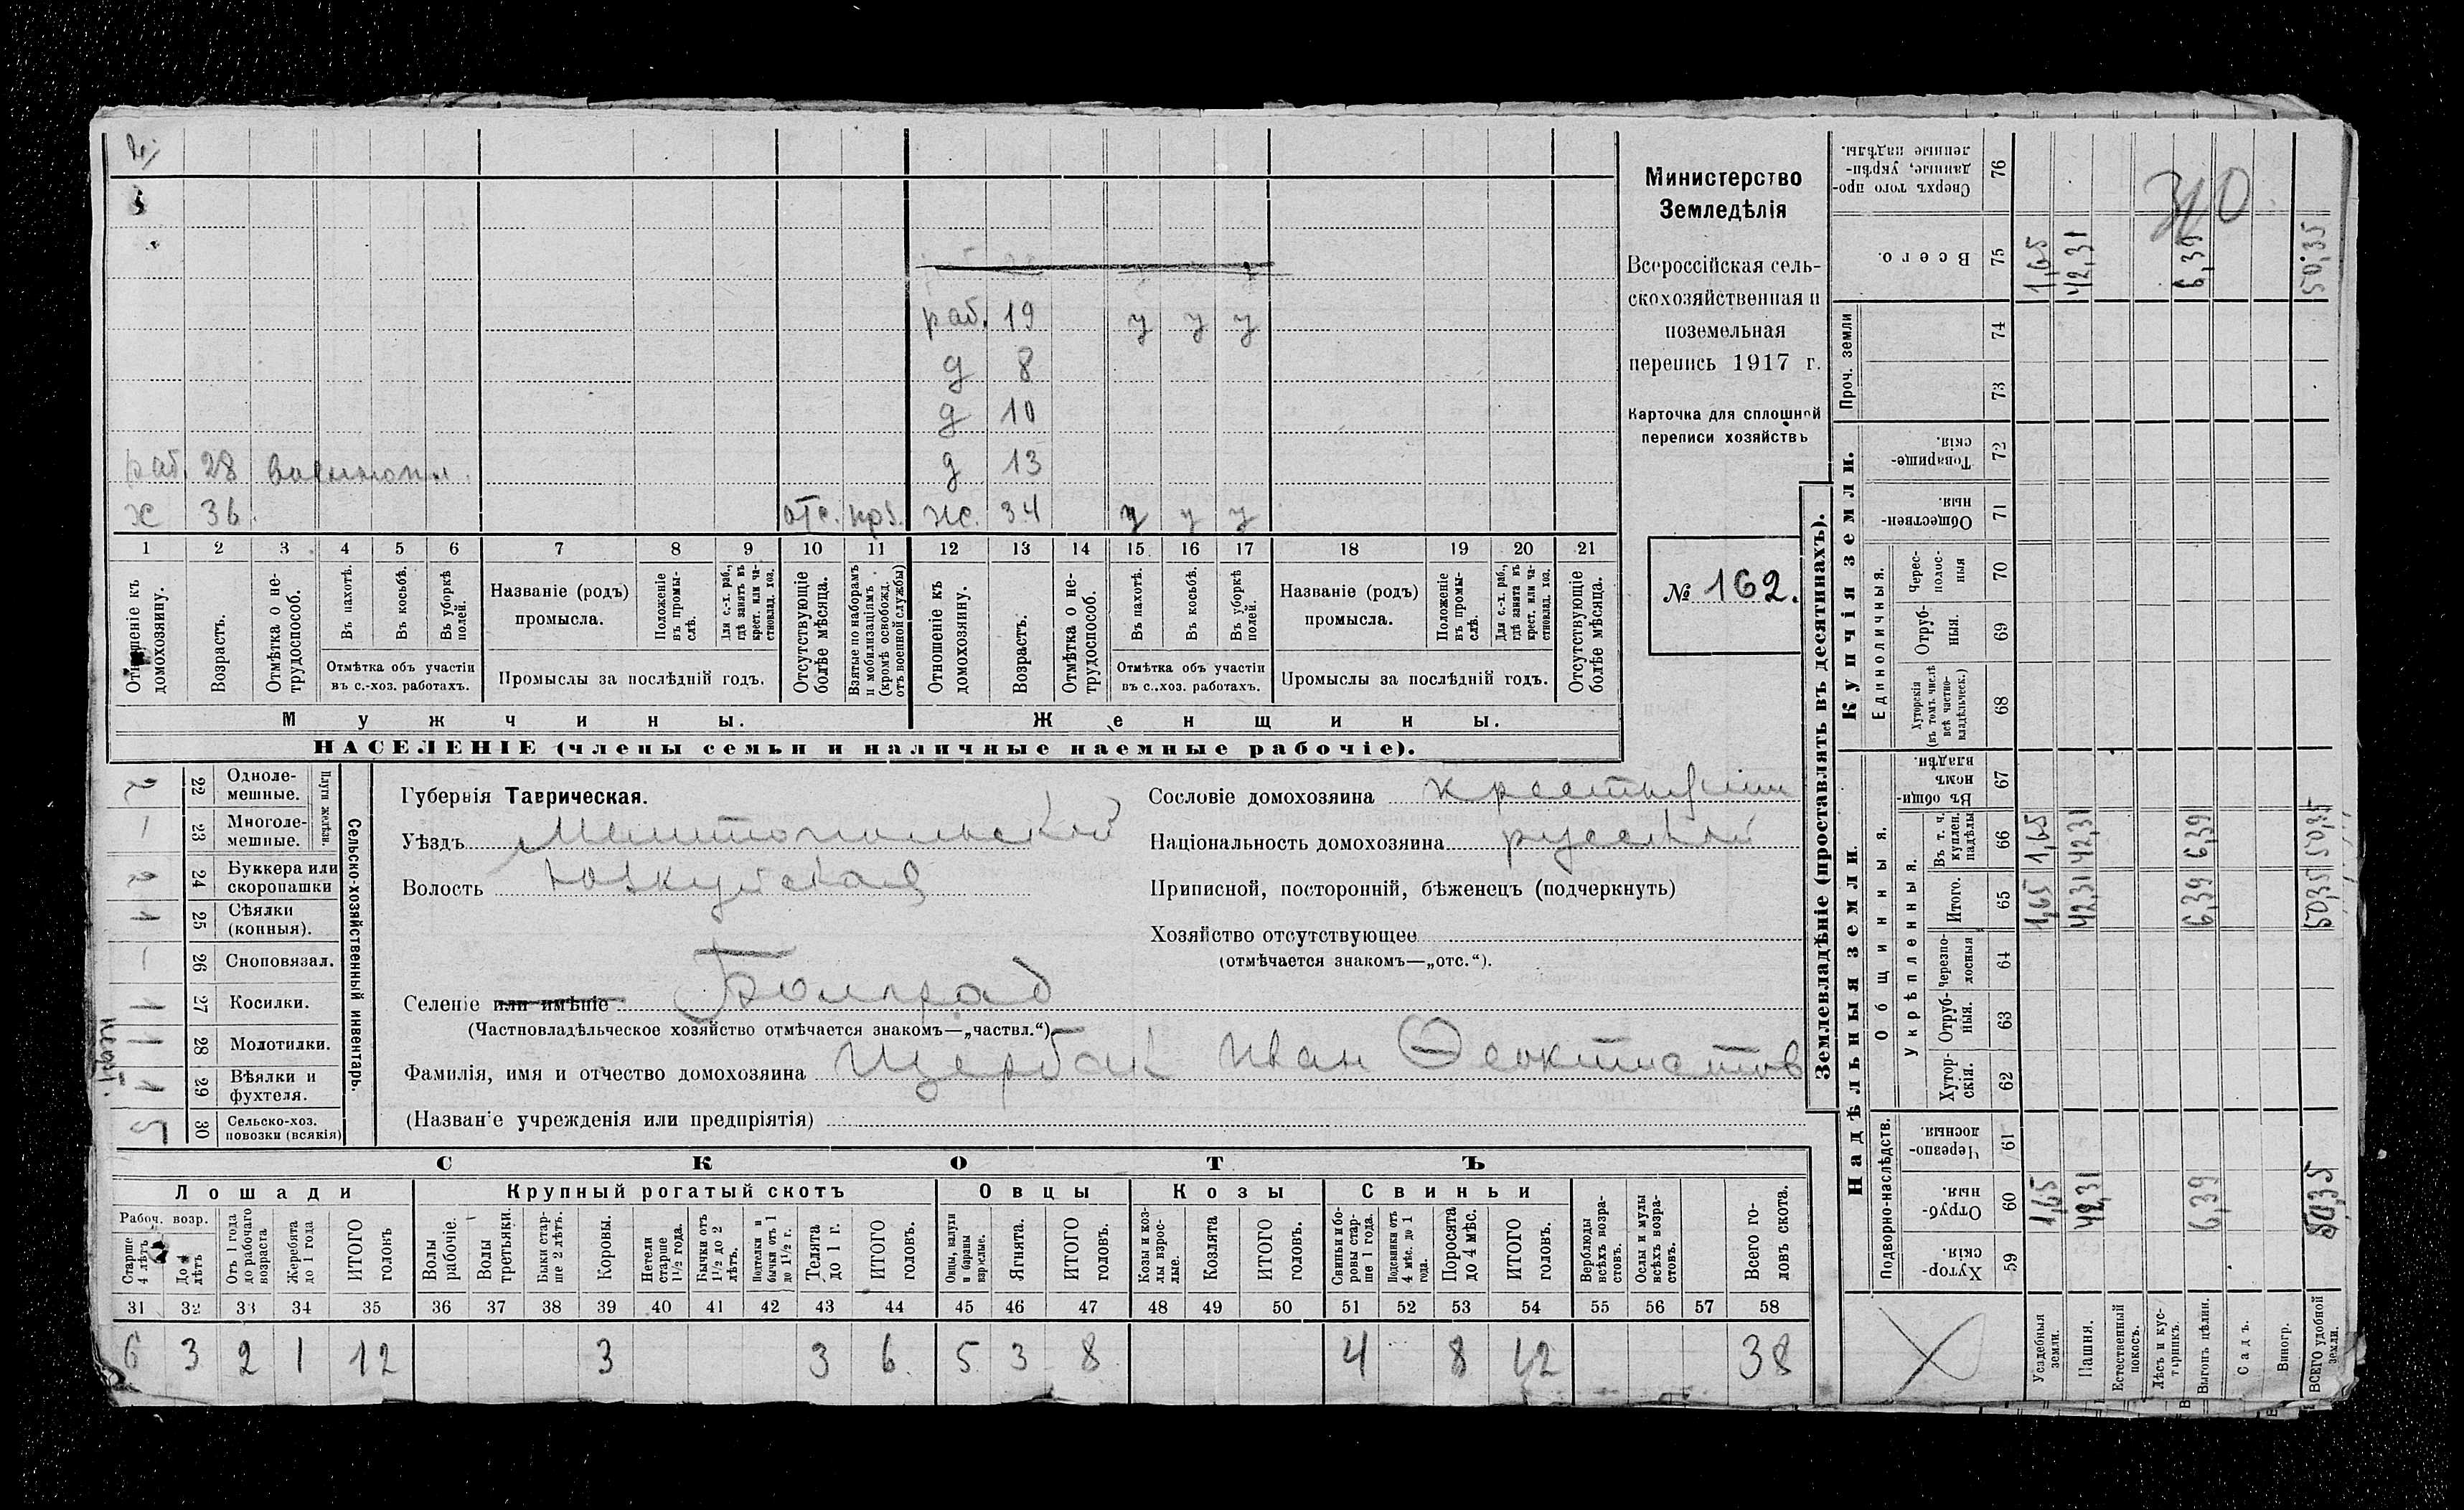 Министерство
Земледѣлія
Всероссійская сель-
скохозяйственная и
поземельная
перепись 1917 г.
Карточка для сплошной
переписи хозяйствъ
№ 162.
раб. 19 у у у
д 8
д 10
д 13
раб. 28 военнопл.
х 36. отс. пр. хс. 34 у у у
1 2 3 4 5 6 7 8 9 10 11 12 13 14 15 16 17 18 19 20 21
Отношеніе къ домохозяину.
Возрастъ.
Отмѣтка о не-трудоспособ.
Въ пахотѣ.
Въ косьбѣ.
Въ уборкѣ полей.
Отмѣтка объ участіи въ с.-хоз. работахъ.
Названіе (родъ) промысла.
Положеніе въ промы-слѣ.
Для с.-х. раб., гдѣ занятъ въ крест. или ча-стновлад. хоз.
Промыслы за послѣдній годъ.
Отсутствующіе болѣе мѣсяца.
Взятые по наборамъ и мобилизаціямъ (кромѣ освобожд. отъ военной службы)
Отношеніе къ домохозяину.
Возрастъ.
Отмѣтка о не-трудоспособ.
Въ пахотѣ.
Въ косьбѣ.
Въ уборкѣ полей.
Отмѣтка объ участіи въ с..хоз. работахъ.
Названіе (родъ) промысла.
Положеніе въ промы-слѣ.
Для с.-х. раб., гдѣ занята въ крест. или ча-стновлад. хоз.
Промыслы за послѣдній годъ.
Отсутствующіе болѣе мѣсяца.
Мужчины. Женщины.
НАСЕЛЕНІЕ (члены семьи и наличные наемные рабочіе).
Сельско-хозяйственный инвентарь.
Плуги желѣзн.
2 22 Одноле-мешные.
23 Многоле-мешные.
2 24 Буккера или скоропашки
1 25 Сѣялки (конныя).
26 Сноповязал.
1 27 Косилки.
1 28 Молотилки.
1 29 Вѣялки и фухтеля.
5 30 Сельско-хоз. повозки (всякія)
Губернія Таврическая.
Уѣздъ Мелитопольской
Волость Юзкуйская
Селеніе или имѣніе Болград
(Частновладѣльческое хозяйство отмѣчается знакомъ—„частвл.“)
Фамилія, имя и отчество домохозяина Щербак Иван Феоктистов
(Названіе учрежденія или предпріятія)
Сословіе домохозяина крестьянин
Національность домохозяина русской
Приписной, посторонній, бѣженецъ (подчеркнуть)
Хозяйство отсутствующее
(отмѣчается знакомъ—„отс.“).
СКОТЪ
Лошади Крупный рогатый скотъ Овцы Козы Свиньи
Рабоч. возр.
Старше 4 лѣтъ
До 4 лѣтъ
Отъ 1 года до рабочаго возраста
Жеребята до 1 года
ИТОГО головъ
Волы рабочіе.
Волы третьяки.
Быки стар-ше 2 лѣтъ.
Коровы.
Нетели старше 1½ года.
Бычки отъ 1½ до 2 лѣтъ.
Подтелки и бычки отъ 1 до 1½ г.
Телята до 1 г.
ИТОГО головъ.
Овцы, валухи и бараны взрослые.
Ягнята.
ИТОГО головъ.
Козы и коз-лы взрос-лые.
Козлята
ИТОГО головъ.
Свиньи и бо-ровы стар-ше 1 года.
Подсвинки отъ 4 мѣс. до 1 года.
Поросята до 4 мѣс.
ИТОГО головъ.
Верблюды всѣхъ возра-стовъ.
Ослы и мулы всѣхъ возра-стовъ.
Всего го-ловъ скота.
31 32 33 34 35 36 37 38 39 40 41 42 43 44 45 46 47 48 49 50 51 52 53 54 55 56 57 58
6 3 2 1 12 3 3 6. 5 3 8 4 8 12 38
Землевладѣніе (проставлять въ десятинахъ).
Надѣльныя земли Купчія земли.
Подворно-наслѣдств. Общинныя.
Укрѣпленныя.
Единоличныя.
Проч. земли
Хутор-скія. 59
Отруб-ныя. 60 1,65 42,31 6,39 50,35
Черезпо-лосныя. 61
Хутор-скія. 62
Отруб-ныя. 63
Черезпо-лосныя 64
Итого. 65 1,65 42,31 6,39 50,35
Въ т. ч. куплен. надѣлы 66 1,65 42,31 6,39 50,35
Въ общи-номъ владѣн. 67
Хуторскія (въ томъ числѣ всѣ частно-владѣльческ.) 68
Отруб-ныя. 69
Черес-полос-ныя 70
Обществен-ныя. 71
Товарище-скія. 72
73
74
Всего. 75 1,65 42,31 6,39 50,35
Сверхъ того про-данные, укрѣп-ленные надѣлы. 76
Усадебныя земли.
Пашня.
Естественный покосъ.
Лѣсъ и кус-тарникъ.
Выгонъ цѣлин.
Садъ.
Виногр.
ВСЕГО удобной земли.